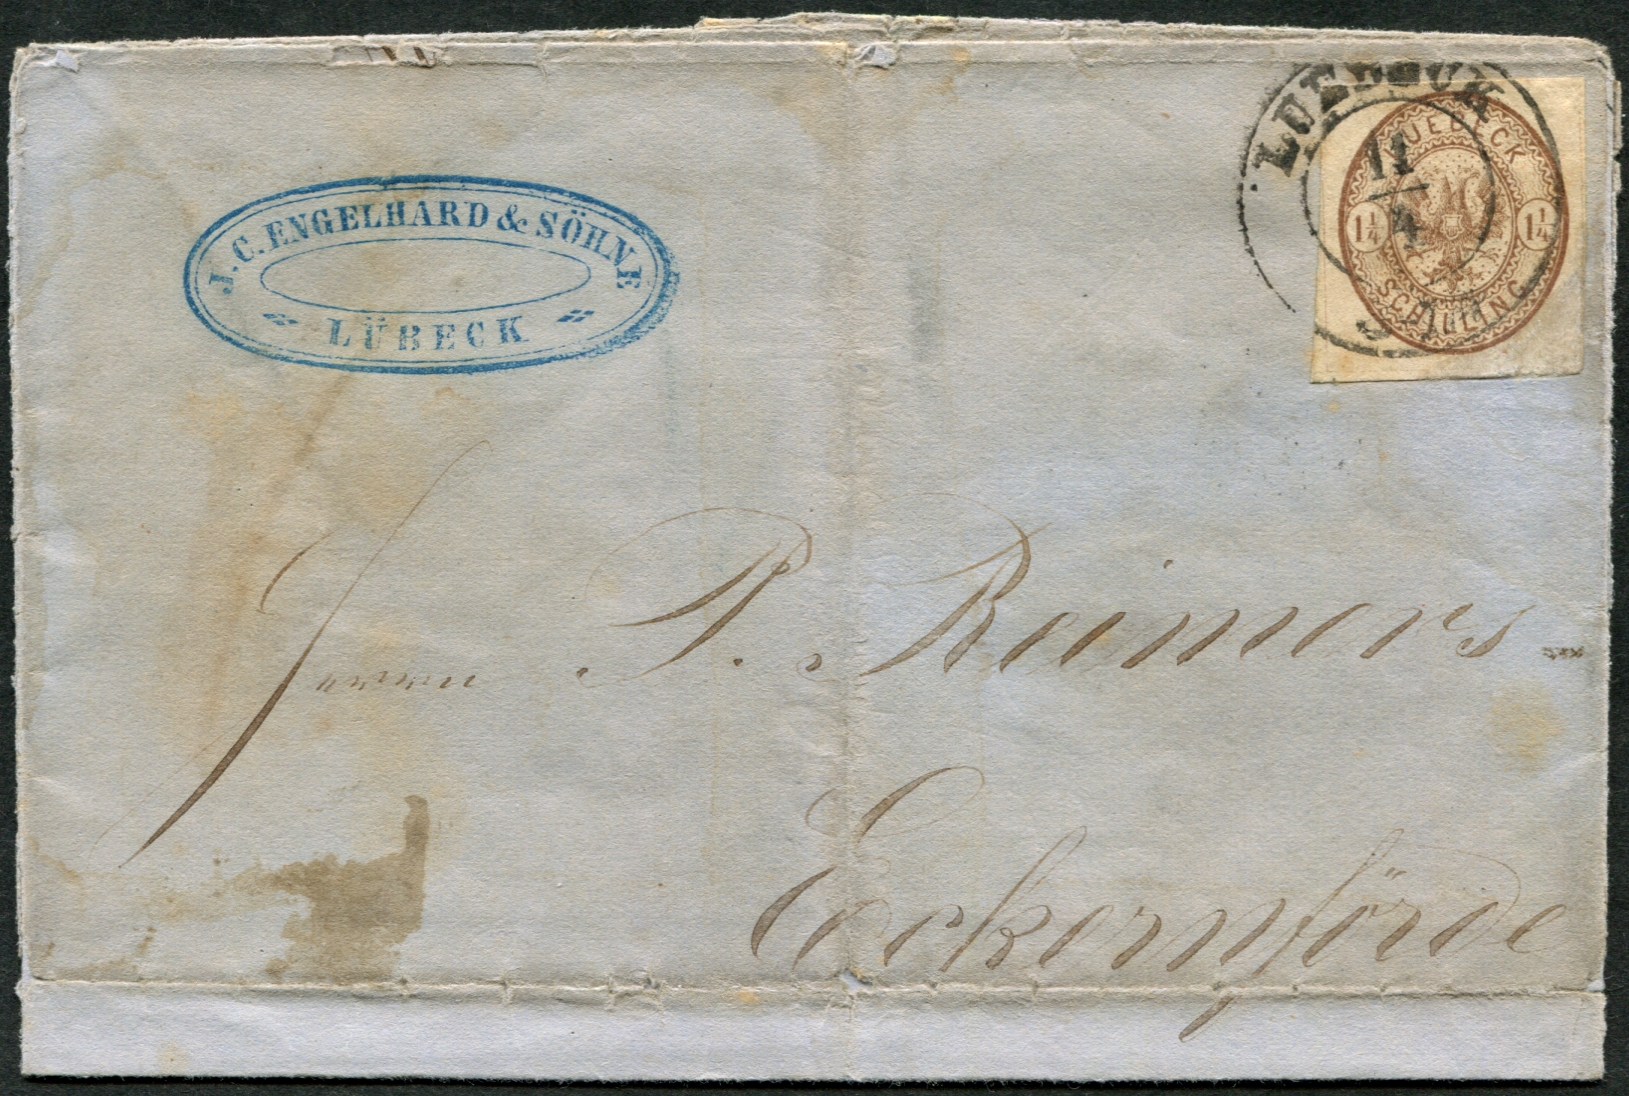 J. C. ENGELHARD & SÖHNE
LÜBECK
LUEBECK
11
4
LUEBECK
1¼ 1¼
SCHILLING
Herrn P. Reimers
Eckernförde